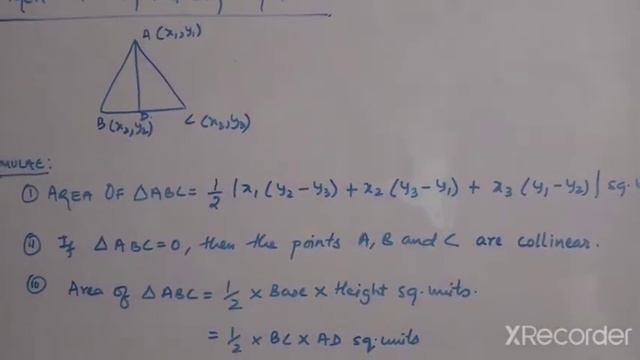 A (x1, y1)
D
B (x2, y2)
C (x3, y3)
MULAE:
① AREA OF △ABC = 1/2 |x1(y2-y3) + x2(y3-y1) + x3(y1-y2)| sq.
⑪ If △ABC=0, then the points A, B and C are collinear.
⑩ Area of △ABC = 1/2 × Base × Height sq.units.
= 1/2 × BC × AD sq.units
XRecorder